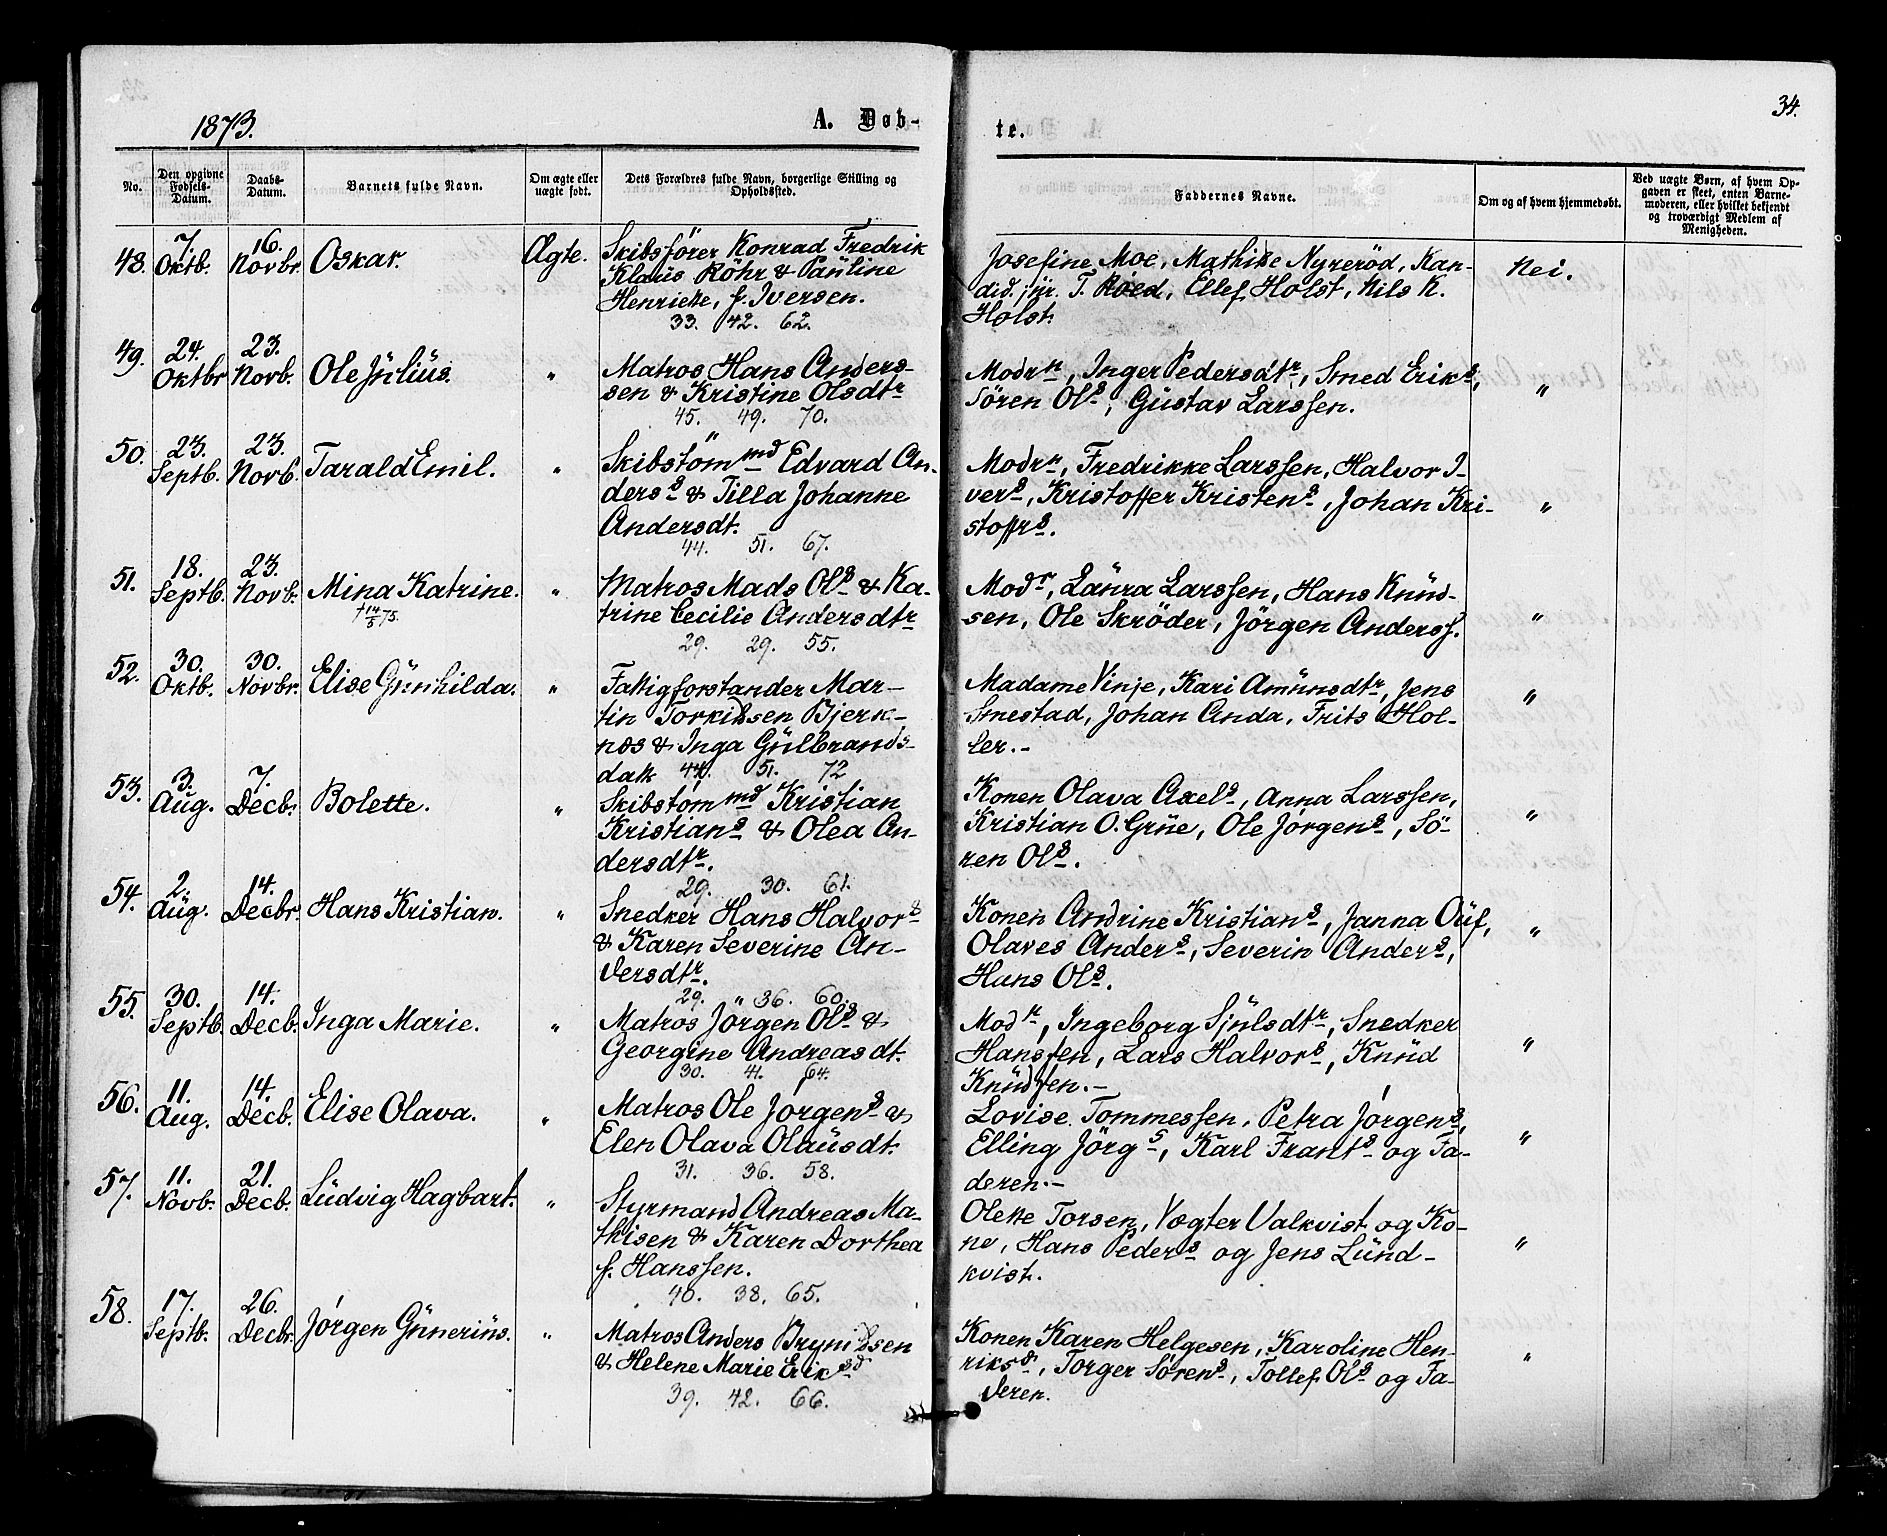 1873.
A. Døb-
te.
34.
No.
Den opgivne Fødsels-Datum.
Daabs-Datum.
Barnets fulde Navn.
Om ægte eller uægte født.
Dets Forældres fulde Navn, borgerlige Stilling og Opholdssted.
Faddernes Navne.
Om og af hvem hjemmedøbt.
Ved uægte Børn, af hvem Op-
gaven er skeet, enten Barne-
moderen, eller hvilket bekjendt
og troværdigt Medlem af
Menigheden.
48. 7. Oktb. 16. Novbr. Oskar. Ægte.
Skibsfører Konrad Fredrik
Klaus Röhr & Pauline
Henriette, f. Iversen.
33. 42. 62.
Josefine Moe, Mathilde Nyrerød, Kan-
did. jur. T. Roed, Ellef Holst, Nils K.
Holst.
Nei.
49. 24. Oktbr. 23. Novb. Ole Julius. "
Matros Hans Anders-
sen & Kristine Olsdtr
45. 49. 70.
Modrn, Inger Pedersdtr, Smed Eriks,
Sören Ols, Gustav Larssen.
"
50. 23. Septb. 23. Novb. Tarald Emil. "
Skibstømmd Edvard An-
derss & Tilla Johanne
Andersdt.
44. 51. 67.
Modrn, Fredrikke Larssen, Halvor I-
vers, Kristoffer Kristens, Johan Kri-
stoffrs.
"
51. 18. Septb. 23. Novb. Mina Katrine. "
† 14/5 75.
Matros Mads Ols & Ka-
trine Cecilie Andersdtr
29. 29. 55.
Modr, Laura Larssen, Hans Knud-
sen, Ole Skröder, Jörgen Anderss.
"
52. 30. Oktb. 30. Novbr. Elise Gunhilda. "
Fattigforstander Mar-
tin Torkildsen Bjerk-
nes & Inga Gulbrands-
datt 44. 51. 72
Madame Vinje, Kari Amundsdtr, Jens
Smestad, Johan Anda, Frits Hol-
ler.-
"
53. 3. Aug. 7. Decbr. Bolette. "
Skibstømmd Kristian
Kristians & Olea An-
dersdtr.
29. 30. 61.
Konen Olava Axels, Anna Larssen,
Kristian O. Grue, Ole Jørgens, Sö-
ren Ols.
"
54. 2. Aug. 14. Decbr. Hans Kristian. "
Snedker Hans Halvors
& Karen Severine An-
dersdtr.
29. " 36. 60.
Konen Andrine Kristians, Janna Ouf,
Olaves Anders, Severin Anders,
Hans Ols.
"
55. 30. Septb. 14. Decb. Inga Marie. "
Matros Jørgen Ols &
Georgine Andreasdt.
30. 41. 64.
Modrn, Ingeborg Sjulsdtr, Snedker
Hanssen, Lars Halvors, Knud
Knudsen.-
"
56. 11. Aug. 14. Decb. Elise Olava. "
Matros Ole Jørgens &
Elen Olava Olausdt.
31. 36. 58.
Lovise Tommessen, Petra Jørgens,
Elling Jörgs, Karl Frants og Fa-
deren.-
"
57. 11. Novb. 21. Decb. Ludvig Hagbart. "
Styrmand Andreas Ma-
thisen & Karen Dorthea
f. Hanssen.
40. 38. 65.
Olette Torsen, Vægter Valkvist og Ko-
ne, Hans Peders og Jens Lund-
kvist.
"
58. 17. Septb. 26. Decbr. Jørgen Gunerius. "
Matros Anders Brynildsen
& Helene Marie Eriksd
39. 42. 66.
Konen Karen Helgesen, Karoline Hen-
riksd, Torger Sørens, Tollef Ols og Fa-
deren.
"